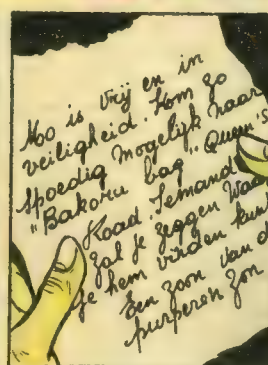 Moo is vrij en in
veiligheid. Kom zo
spoedig mogelijk naar
"Bakoru bag" Queen's
Road. Iemand
zal je zeggen waar
je hem vinden kunt
Een zoon van de
purperen zon